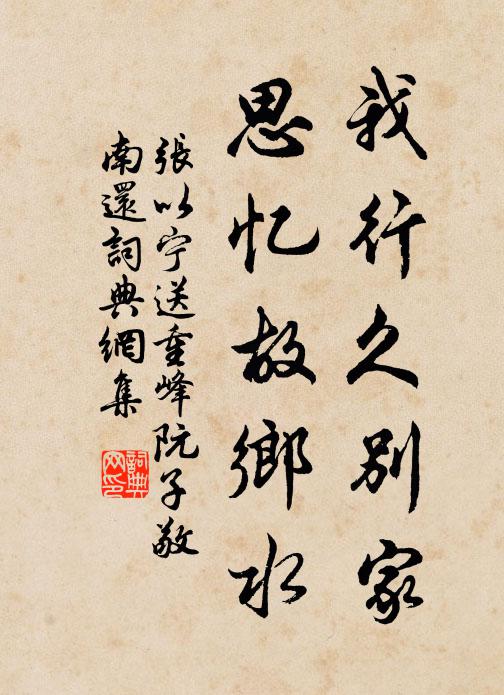 我行久别家
思忆故鄉水
張以宁送重峰阮子敬
南還詞典網集
詞典網印